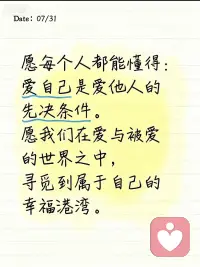 Date: 07/31
愿每个人都能懂得:
爱自己是爱他人的
先决条件。
愿我们在爱与被爱
的世界之中,
寻觅到属于自己的
幸福港湾。